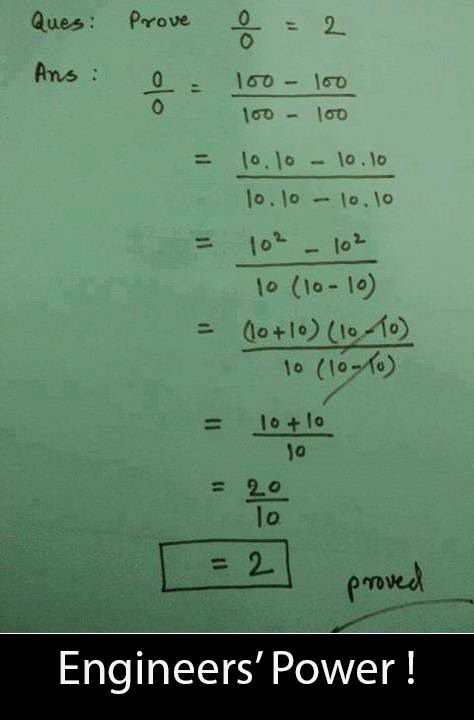 Ques: Prove 0/0 = 2
Ans: 0/0 = 100 - 100 / 100 - 100
= 10.10 - 10.10 / 10.10 - 10.10
= 10² - 10² / 10 (10 - 10)
= (10+10) (10-10) / 10 (10-10)
= 10 + 10 / 10
= 20 / 10
= 2
proved
Engineers' Power !